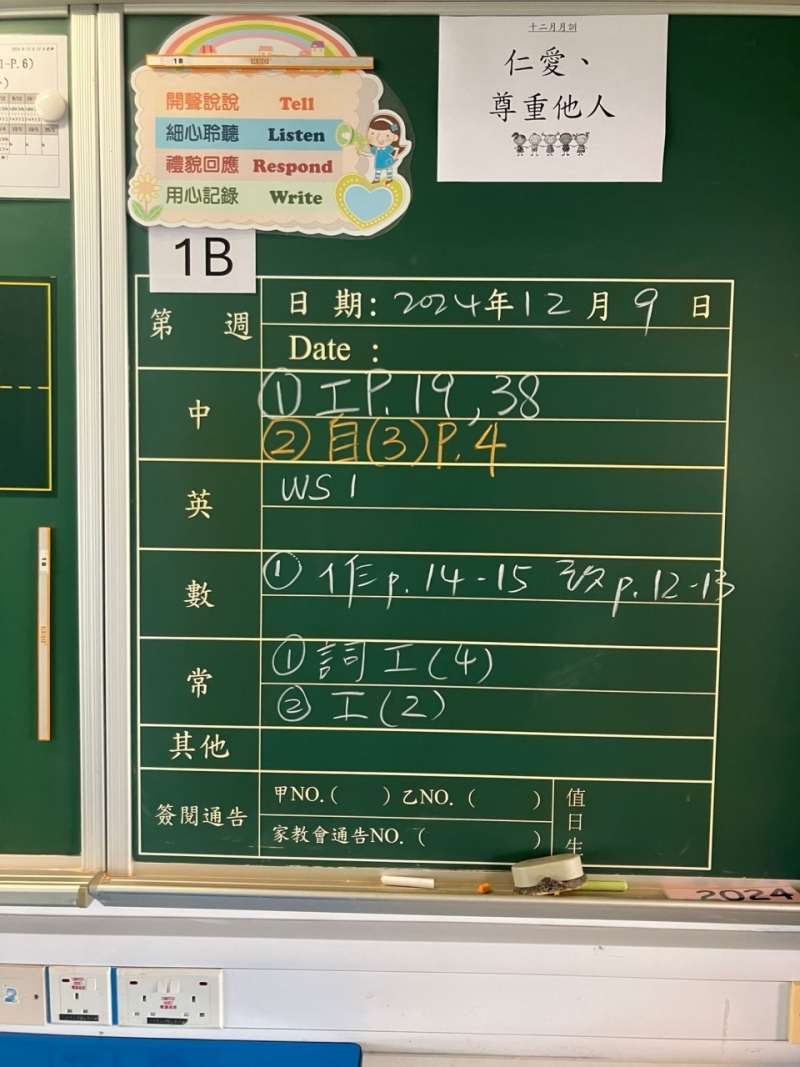 1B
開聲說說 Tell
細心聆聽 Listen
禮貌回應 Respond
用心記錄 Write
十二月月訓
仁愛、
尊重他人
1B
第 週
日 期: 2024年12月9日
Date :
中
① 工P.19,38
② 自(3)P.4
英
WS 1
數
① 作p.14-15 改p.12-13
常
① 詞工(4)
② 工(2)
其他
簽閱通告
甲NO.( ) 乙NO. ( )
家教會通告NO. ( )
值日生
2024
2